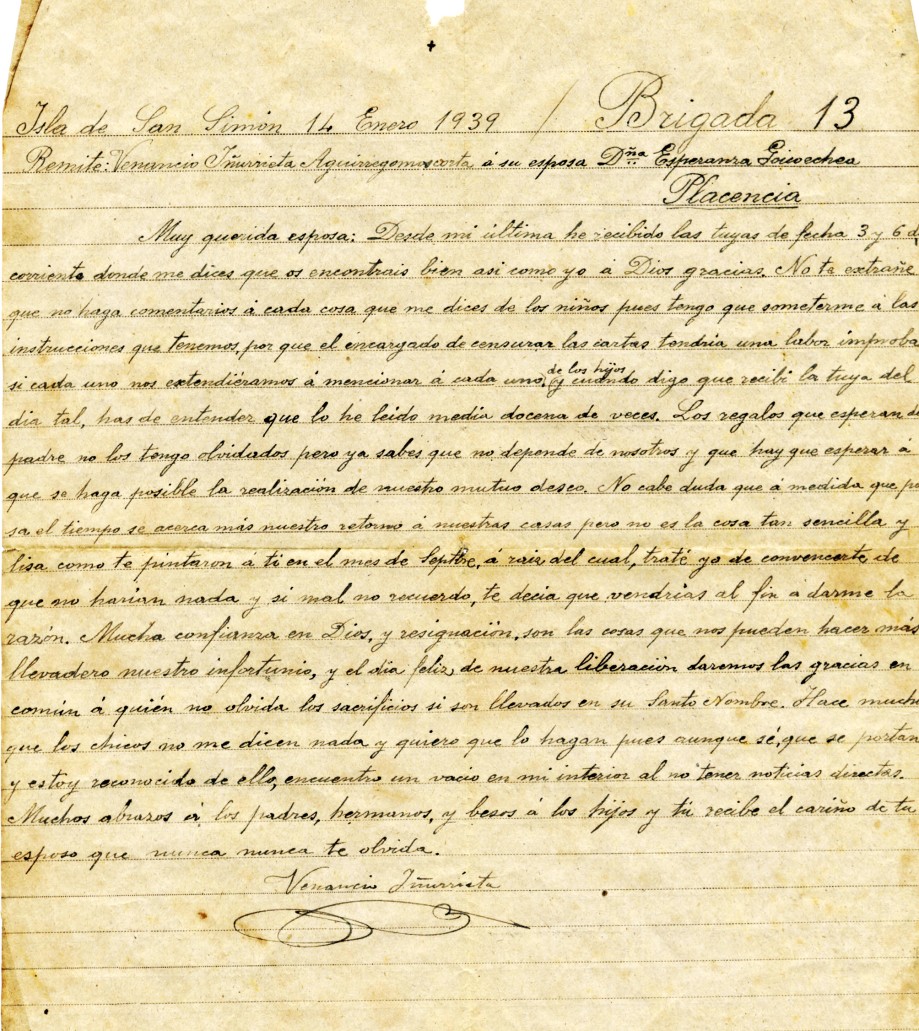 Isla de San Simón 14 Enero 1939 / Brigada 13
Remite: Venancio Iñurrieta Aguirregomoscorta á su esposa Dña Esperanza Goicoechea
Placencia
Muy querida esposa: Desde mi última he recibido las tuyas de fecha 3 y 6 d
corriente donde me dices que os encontrais bien asi como yo á Dios gracias. No te extrañe
que no haga comentarios á cada cosa que me dices de los niños pues tengo que someterme á las
instrucciones que tenemos, por que el encargado de censurar las cartas tendria una labor improba
de los hijos
si cada uno nos extendiéramos á mencionar á cada uno, y cuando digo que recibi la tuya del
dia tal, has de entender que lo he leido media docena de veces. Los regalos que esperan de
padre no los tengo olvidados pero ya sabes que no depende de nosotros y que hay que esperar á
que se haga posible la realización de nuestro mutuo deseo. No cabe duda que á medida que pa
sa el tiempo se acerca más nuestro retorno á nuestras casas pero no es la cosa tan sencilla y
lisa como te pintaron á ti en el mes de Septbre, á raiz del cual, traté yo de convencerte de
que no harian nada y si mal no recuerdo, te decia que vendrias al fin a darme la
razón. Mucha confianza en Dios, y resignación, son las cosas que nos pueden hacer más
llevadero nuestro infortunio, y el dia feliz, de nuestra liberación daremos las gracias en
común á quién no olvida los sacrificios si son llevados en su Santo Nombre. Hace mucho
que los chicos no me dicen nada y quiero que lo hagan pues aunque sé, que se portan
y estoy reconocido de ello, encuentro un vacio en mi interior al no tener noticias directas.
Muchos abrazos á los padres, hermanos, y besos á los hijos y tú recibe el cariño de tu
esposo que nunca nunca te olvida.
Venancio Iñurrieta